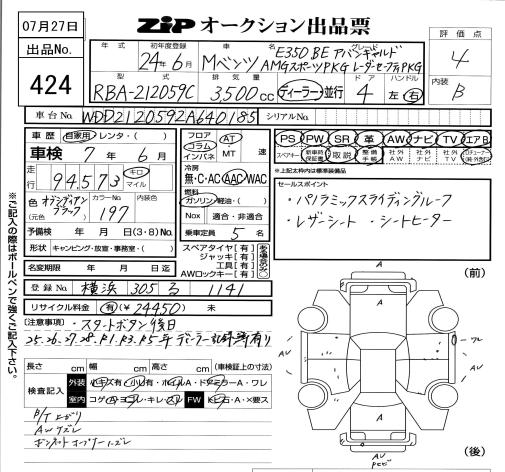 07月27日
ZIP オークション出品票
出品No.
424
評価点
4
内装
B
年式
初年度登録
24年6月
車名
Mベンツ
グレード
E350 BE アバンギャルド
AMGスポーツPKG レーダーセーフティPKG
型式
RBA-212059C
排気量
3,500cc
ディーラー・並行
ドア
4
ハンドル
左・右
車台No.
WDD2120592A640185
シリアルNo.
車歴
自家用・レンタ・( )
車検 7年 6月
走行
94,573
キロ
マイル
色
(元色)
オブシディアン
ブラック
カラーNo.
197
内装色
予備検 年 月 日(3・8)No.
形状 キャンピング・放宣・事務室・( )
名変期限 年 月 日迄
フロア
コラム
インパネ
AT
・
MT
速
冷房
無・C・AC・AAC・WAC
燃料
ガソリン・軽油・( )
Nox 適合・非適合
乗車定員 5名
スペアタイヤ【有】
ジャッキ【有】
工具【有】
AWロックキー【有】
ある場合のみ○
PS PW SR 革 AW ナビ TV エアB
スペアキー
新車時保証書
取説
整備手帳
社外AW
社外ナビ
社外TV
※上記太枠内は標準装備品
セールスポイント
・パノラミックスライディングルーフ
・レザーシート ・シートヒーター
登録No. 横浜 305 る 1141
リサイクル料金 有(¥24450) 未
(注意事項)
・スタートボタン後日
25.26.27.28.R1.R3.R5年 ディーラー記録簿有り
長さ cm 幅 cm 高さ cm (車検証上の寸法)
検査記入
外装
小キズ有・小凹有・ホイルA・ドアミラーA・ワレ
室内
コゲ・穴・ヨゴレ・キレ・スレ
FW
トビ石・A・×要ス
B/T エグリ
AWズレ
※ご記入の際はボールペンで強くご記入下さい。
(前)
(後)
A
A
A
A
AV
AV
ワレ
AV